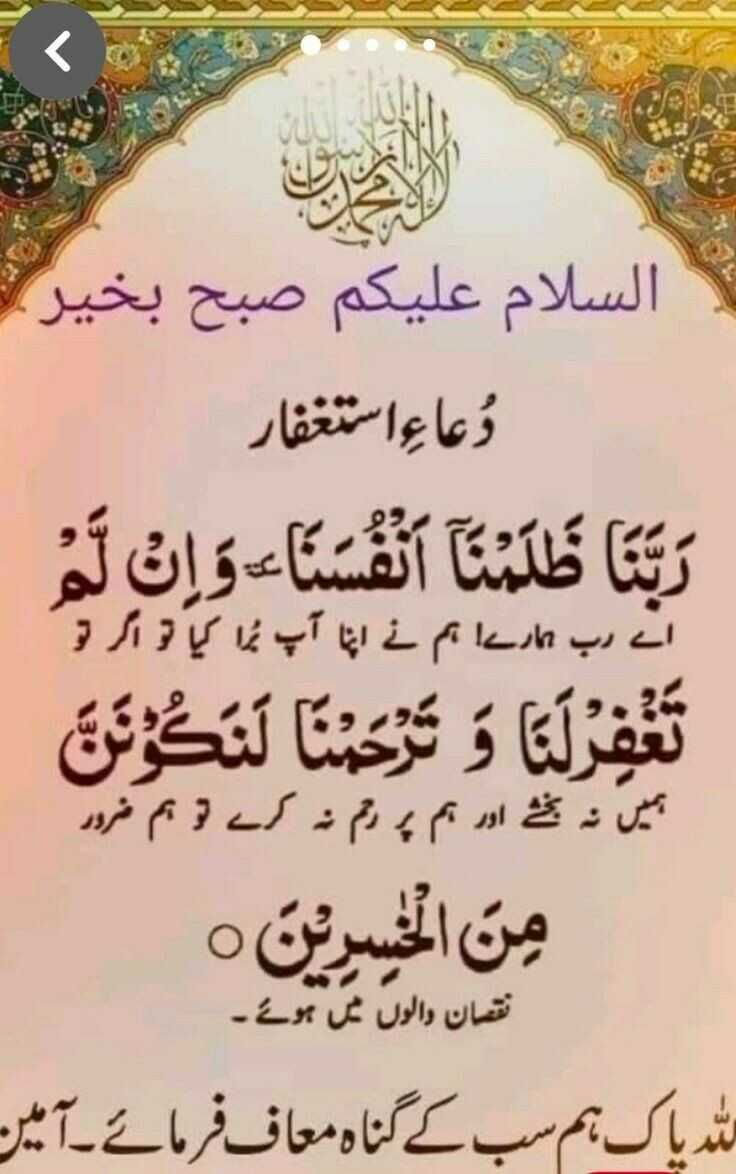 لا اله الا الله محمد رسول الله
السلام علیکم صبح بخیر
دُعاءِ استغفار
رَبَّنَا ظَلَمْنَآ اَنْفُسَنَا ٚ وَ اِنْ لَّمْ
اے رب ہمارے! ہم نے اپنا آپ بُرا کیا تو اگر تو
تَغْفِرْلَنَا وَ تَرْحَمْنَا لَنَكُوْنَنَّ
ہمیں نہ بخشے اور ہم پر رحم نہ کرے تو ہم ضرور
مِنَ الْخٰسِرِيْنَ ○
نقصان والوں میں ہوئے ۔
للہ پاک ہم سب کے گناہ معاف فرمائے۔آمین